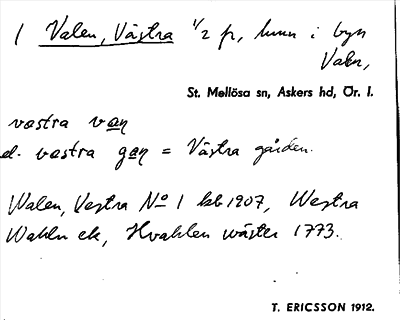 1 Valen, Västra 1/2 fr, hmn i byn
Valn,
St. Mellösa sn, Askers hd, Ör. l.
vastra van
el. vastra gan = Västra gården.
Walen, Vestra No 1 kb 1907, Westra
Wahln ek, Hvahlen wäster 1773.
T. ERICSSON 1912.